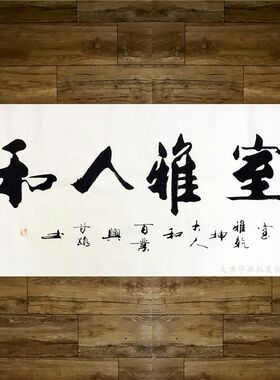 室雅人和
室雅乾坤大人和百業興